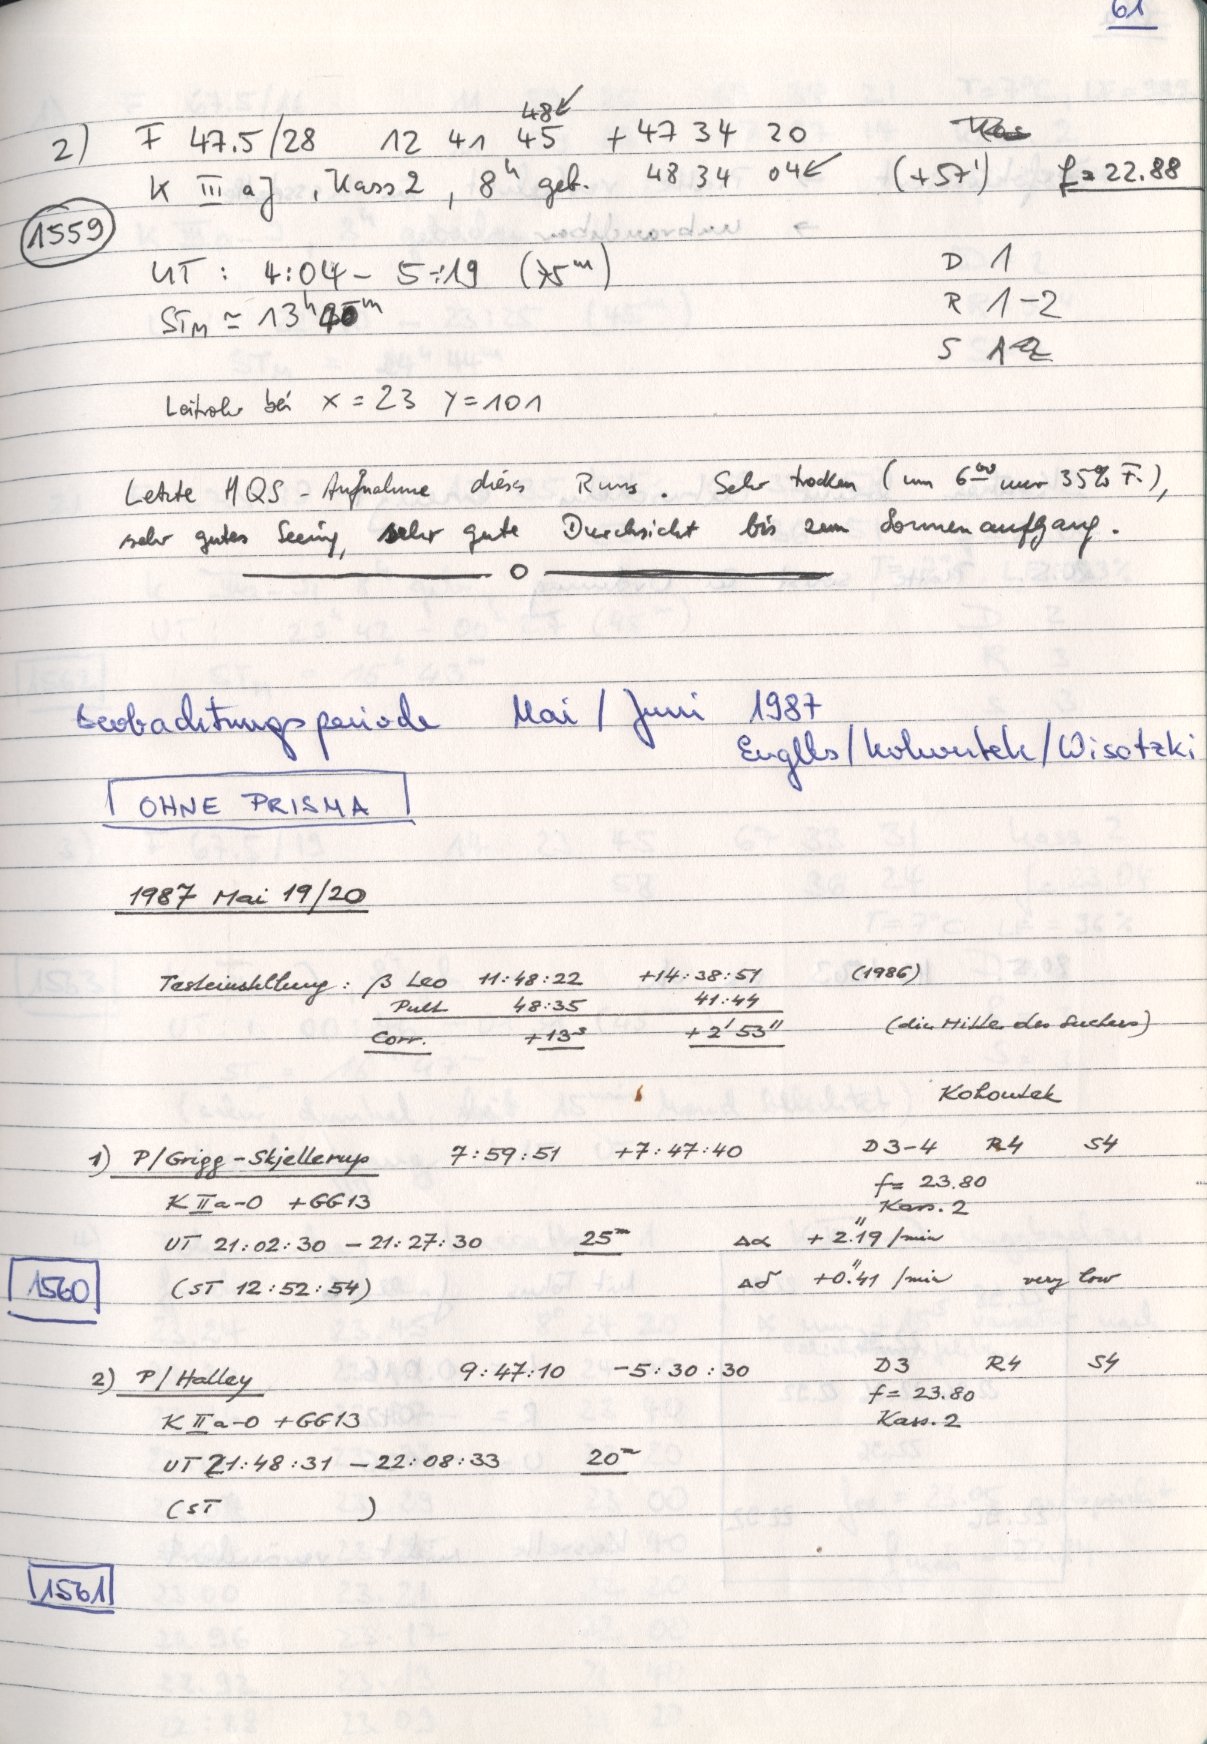 61
48
2) F 47.5/28 12 41 45 +47 34 20
K III aJ, Kass 2, 8h geb. 48 34 04 (+57') f = 22.88
1559
UT: 4:04 - 5:19 (75m) D 1
STM ≃ 13h 40m R 1-2
S 1-2
Leitrohr bei x = 23 y = 101
Letzte HQS-Aufnahme dieses Runs. Sehr trocken (um 6 00 nur 35% F.),
sehr gutes Seeing, sehr gute Durchsicht bis zum Sonnenaufgang.
Beobachtungsperiode Mai / Juni 1987
Engels/Kohoutek/Wisotzki
OHNE PRISMA
1987 Mai 19/20
Testeinstellung: β Leo 11:48:22 +14:38:51 (1986)
Pult 48:35 41:44
Corr. +13s +2'53" (die Mitte des Suchers)
Kohoutek
1) P/Grigg-Skjellerup 7:59:51 +7:47:40 D3-4 R4 S4
f= 23.80
K IIa-O +GG13 Kass. 2
UT 21:02:30 - 21:27:30 25m Δα + 2."19 /min
1560 (ST 12:52:54) Δδ +0."41 /min very low
2) P/Halley 9:47:10 -5:30:30 D3 R4 S4
f= 23.80
K IIa-O +GG13 Kass. 2
UT 21:48:31 - 22:08:33 20m
(ST )
1561